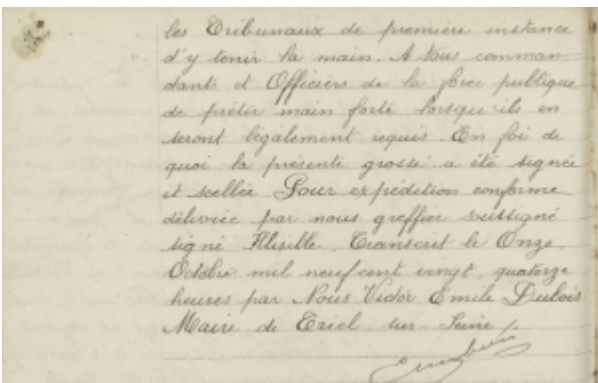 les Tribunaux de première instance
d'y tenir la main. A tous comman-
dants et Officiers de la force publique
de prêter main forte lorsqu'ils en
seront légalement requis. En foi de
quoi la présente grosse a été signée
et scellée Pour expédition conforme
délivrée par nous greffier soussigné
signé Illisible. Transcrit le Onze
Octobre mil neuf cent vingt, quatorze
heures par Nous Victor Emile Dubois
Maire de Triel sur Seine.